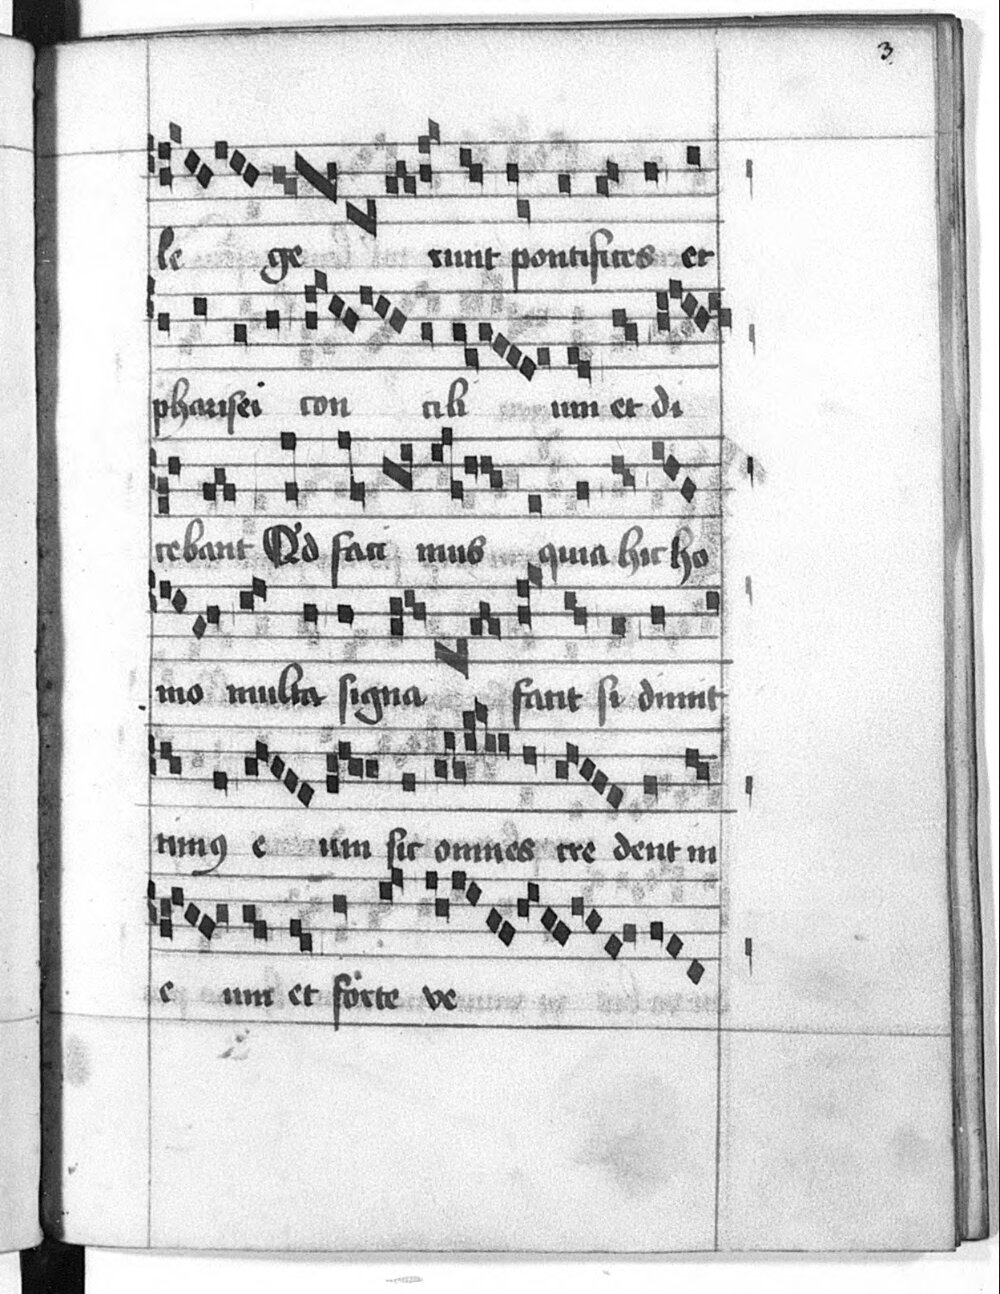 3
le ge runt pontifices et
pharisei con cili um et di
cebant Qd faci mus quia hic ho
mo multa signa facit si dimit
timꝰ e um sic omnes cre dent in
e um et forte ve